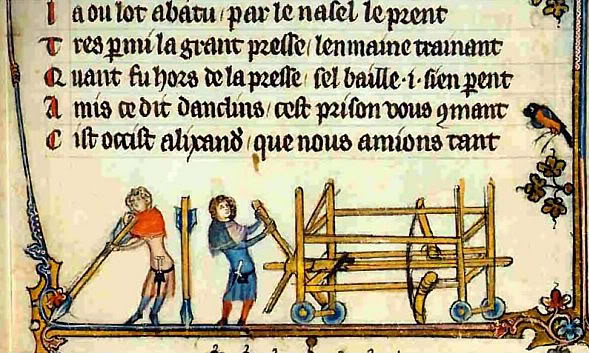 I a ou lot abatu / par le nasel le prent
T res ꝑmi la grant presse / lenmaine trainant
Q uant fu hors de la presse / sel baille ·i· sien ꝑent
A mis ce dit danclins / cest prison vous ꝯmant
C ist occist alixand᾽ / que nous amions tant